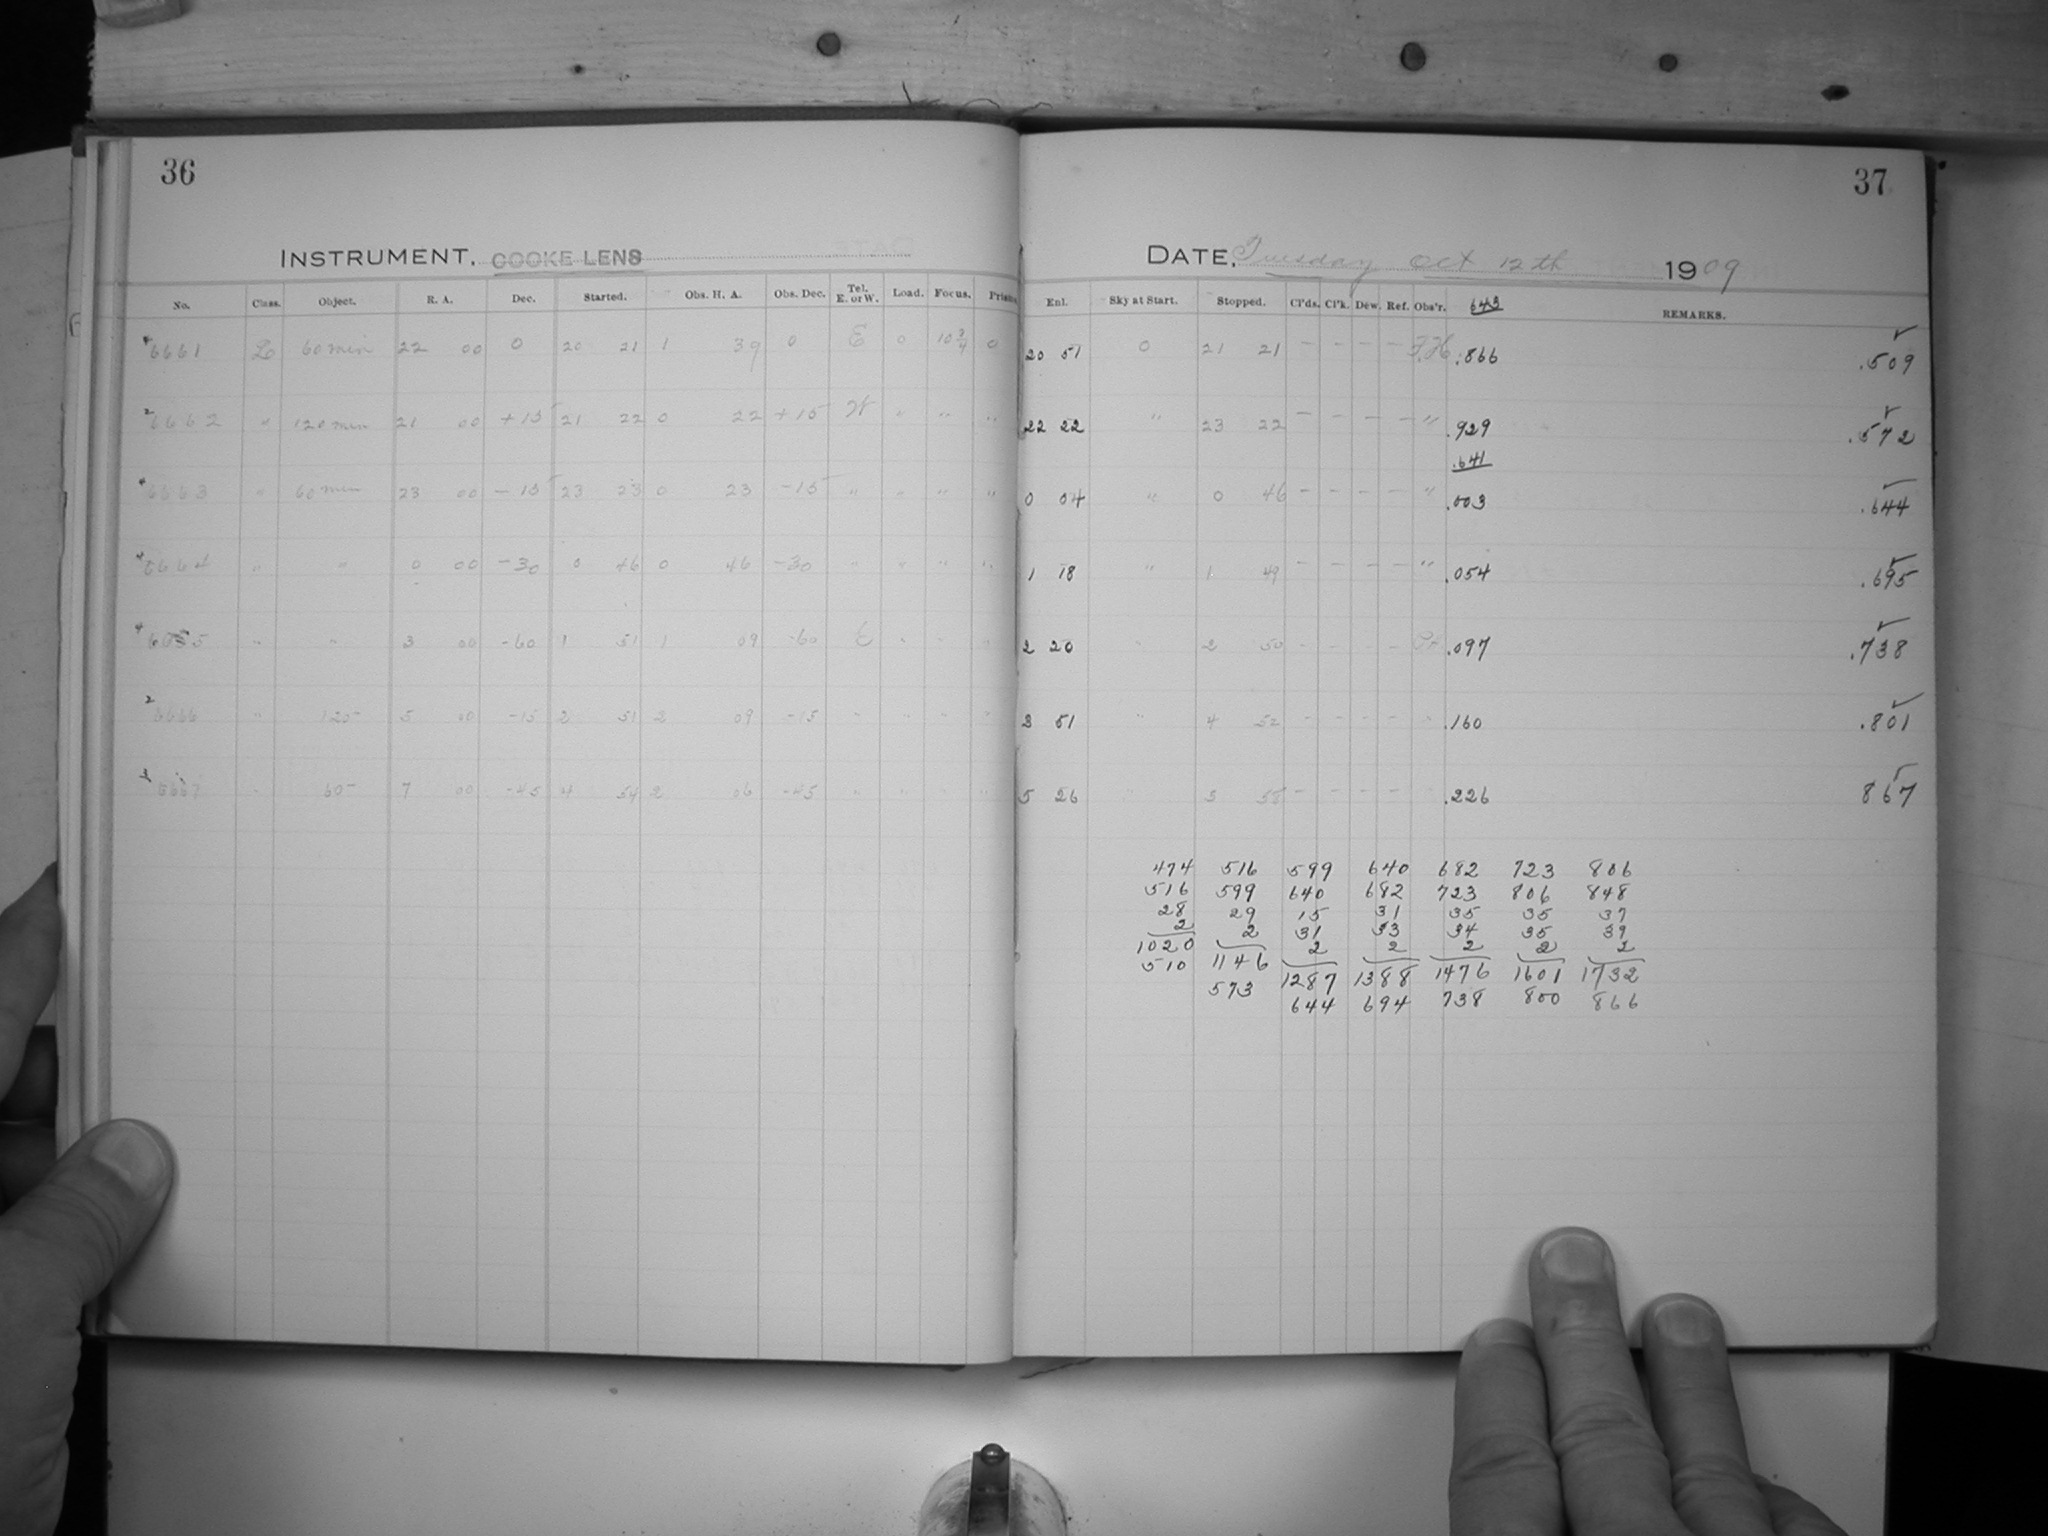 36
INSTRUMENT. COOKE LENS
No. Class. Object. R. A. Dec. Started. Obs. H. A. Obs. Dec. Tel. E. or W. Load. Focus. Prism
6661 L 60 min 22 00 0 20 21 1 39 0 E 0 10 3/4 0
2 6662 " 120 min 21 00 +15 21 22 0 22 +15 W " " "
6663 " 60 min 23 00 -15 23 23 0 23 -15 " " " "
6664 " " 0 00 -30 0 46 0 46 -30 " " " "
" " 3 00 -60 1 51 1 09 -60 E " " "
2 6666 " 120 5 00 -15 2 51 2 09 -15 " " " "
3 6667 " 60 7 00 -45 4 54 2 06 -45 " " " "
37
DATE, Tuesday Oct 12th 1909
Enl. Sky at Start. Stopped. Cl'ds. Cl'k. Dew. Ref. Obs'r. 643 REMARKS.
20 51 0 21 21 - - - - .866 .509
22 22 " 23 22 - - - - " .929 .572
.641
0 04 " 0 46 - - - - " .003 .644
1 18 " 1 49 - - - - " .054 .695
2 20 " 2 50 - - - - .097 .738
3 51 " 4 52 - - - - " .160 .801
5 26 " 5 55 - - - - .226 867
474 516 599 640 682 723 806
516 599 640 682 723 806 848
28 29 15 31 35 35 37
2 2 31 33 34 35 39
1020 1146 2 2 2 2 2
510 573 1287 1388 1476 1601 1732
644 694 738 800 866